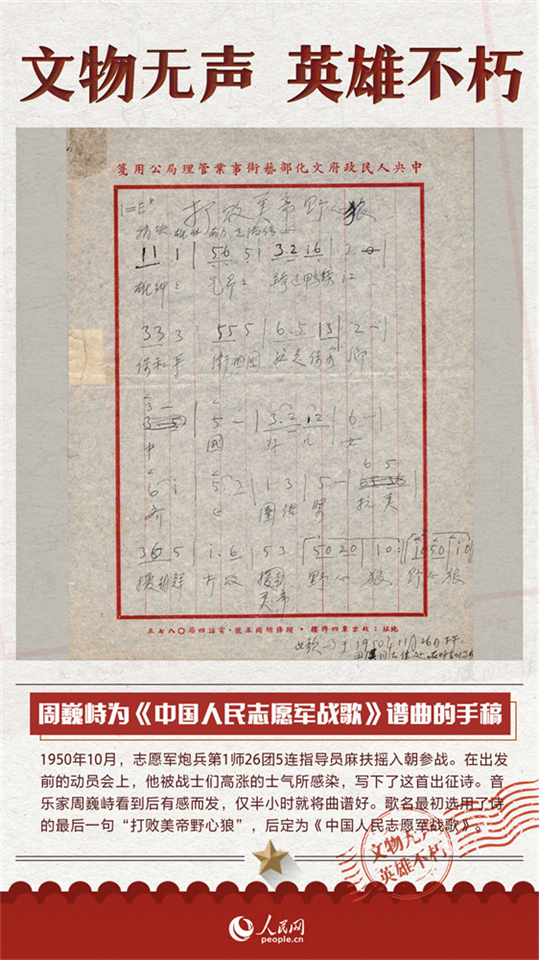 文物无声 英雄不朽
中央人民政府文化部藝術事業管理局公用箋
打败美帝野心狼
11 1 | 56 5 | 3.2 16 | 2 - |
雄赳赳 气昂昂 跨过鸭绿江
33 3 | 55 5 | 6.5 13 | 2 - |
保和平 卫祖国 就是保家乡
5 - | 3.2 12 | 6 - |
中 国 好 儿 女
齐 心 团结紧 抗美
36 5 | i.6 | 53 | 5020 | 10
援朝鲜 打败 美帝 野心狼 野心狼
地址：北京東四牌樓·頭條胡同五號·電話四局〇八七五
1950年11月26日
周巍峙为《中国人民志愿军战歌》谱曲的手稿
1950年10月，志愿军炮兵第1师26团5连指导员麻扶摇入朝参战。在出发
前的动员会上，他被战士们高涨的士气所感染，写下了这首出征诗。音
乐家周巍峙看到后有感而发，仅半小时就将曲谱好。歌名最初选用了诗
的最后一句“打败美帝野心狼”，后定为《中国人民志愿军战歌》。
文物无声
英雄不朽
人民网
people.cn